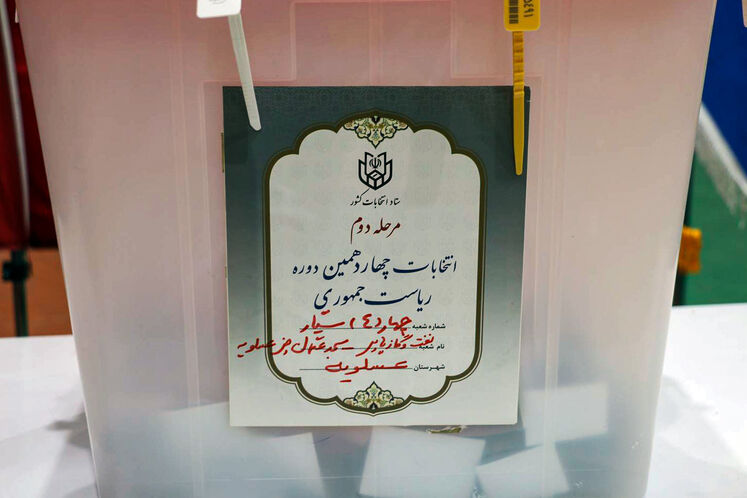 ستاد انتخابات کشور
مرحله دوم
انتخابات چهاردهمین دوره
ریاست جمهوری
شماره شعبه چهارده ۱۴ سیار
نام شعبه نفت و گاز پارس
شهرستان عسلویه